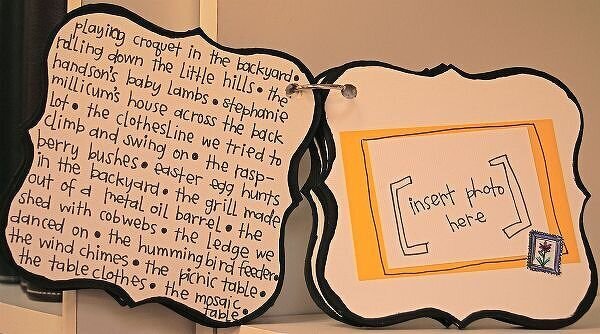 playing croquet in the backyard •
rolling down the little hills • the
handson's baby lambs • stephanie
millicum's house across the back
lot • the clothesline we tried to
climb and swing on • the rasp-
berry bushes • easter egg hunts
in the backyard • the grill made
out of a metal oil barrel • the
shed with cobwebs • the ledge we
danced on • the hummingbird feeder •
the wind chimes • the picnic table •
the table clothes • the mosaic
table •
[insert photo
here]